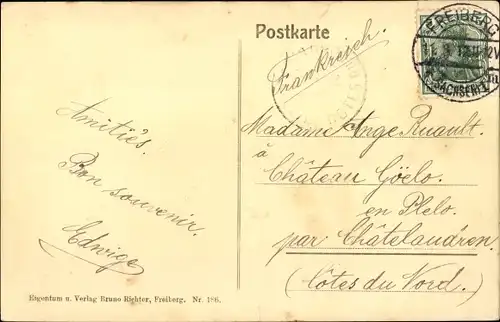 Postkarte
Frankreich.
FREIBERG
(SACHSEN) 1
Amitiés.
Bon souvenir.
Edwige
Madame Ange Ruault.
à
Château Göelo.
en Plelo.
par Châtelaudren.
(Côtes du Nord.)
Eigentum u. Verlag Bruno Richter, Freiberg. Nr. 186.